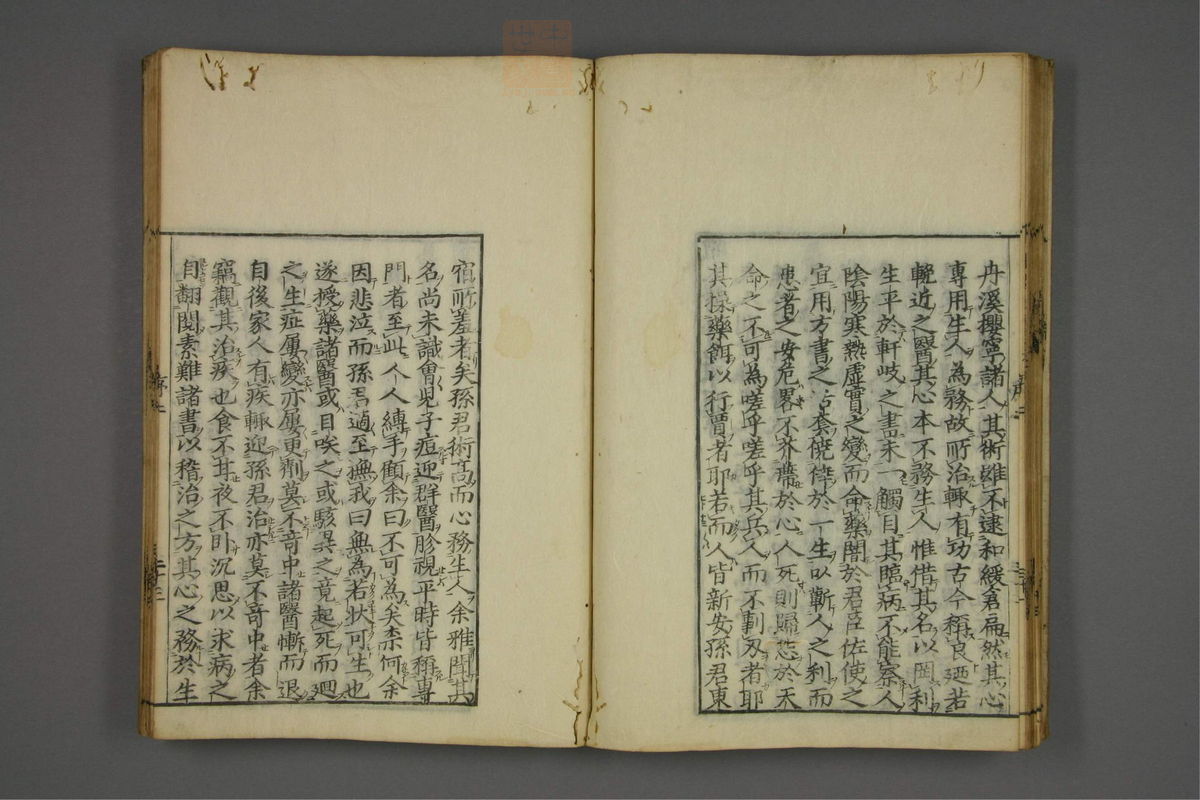 丹溪攖寧諸人其術雖不逮和緩倉扁然其心
專用生人為務故所治輒有功古今稱良廼若
輓近之醫其心本不務生人惟借其名以罔利
生平於軒岐之書未一觸目其臨病不能察人
陰陽寒熱虛實之變而命藥闇於君臣佐使之
宜用方書之活套僥倖於一生以蘄人之利而
患者之安危畧不芥蔕於心人死則歸怨於天
命之不可為嗟乎嗟乎其兵人而不剚刃者耶
其操藥餌以行賈者耶若而人皆新安孫君東
宿所羞者矣孫君術高而心務生人余雅聞其
名尚未識會兒子痘迎群醫胗視平時皆稱專
門者至此人人縳手顧余曰不可為矣柰何余
因悲泣而孫君適至撫我曰無為若狀可生也
遂授藥諸醫或目咲之或駭異之竟起死而廻
之生症屢變亦屢更劑莫不竒中諸醫慚而退
自後家人有疾輒迎孫君治亦莫不竒中者余
竊觀其治疾也食不甘夜不卧沉思以求病之
自翻閱素難諸書以稽治之方其心之務於生